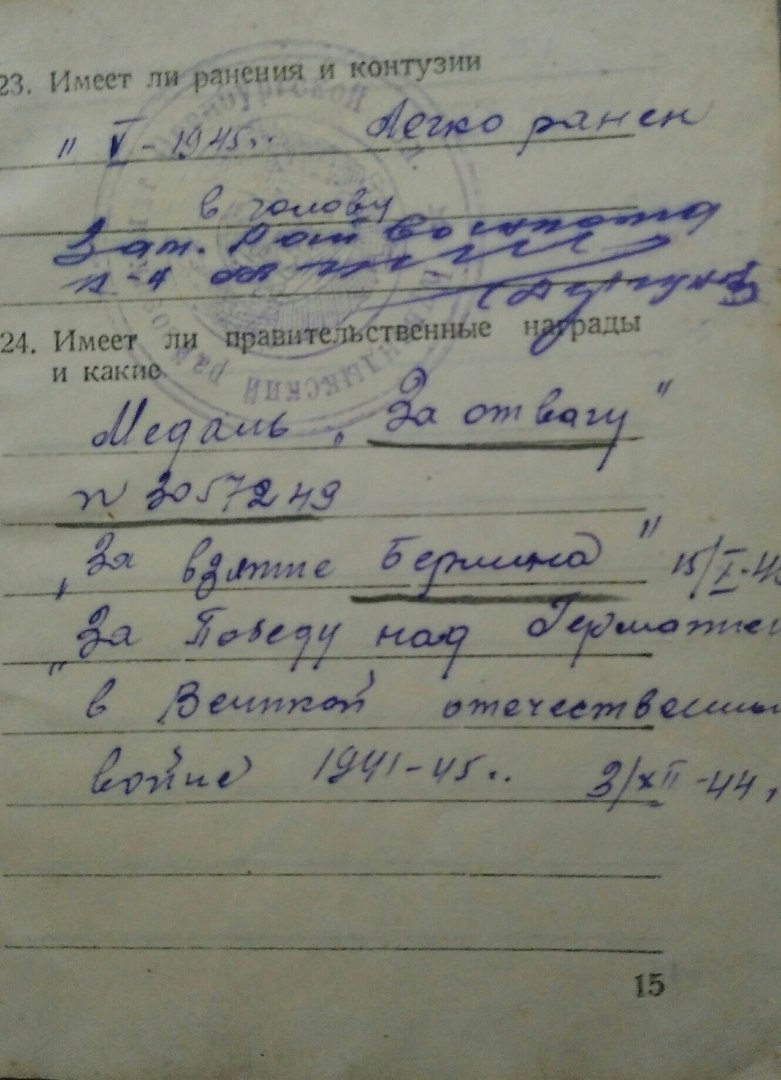 23. Имеет ли ранения и контузии
" V - 1945.. Легко ранен
в голову
Зам. Рай военкома
24. Имеет ли правительственные награды
и какие
Медаль „За отвагу"
N 3057249
„За взятие Берлина" 15/I-4
„За Победу над Германией
в Великой отечественной
войне 1941-45.. 3/XII-44,
15